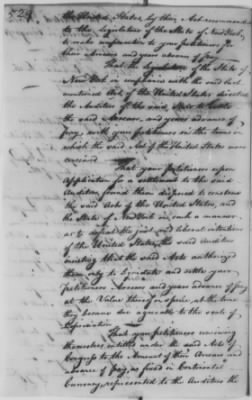 528
the United States, by their Act recommend
to the Legislature of the State of New York,
to make compensation to your petitioners for
their Arrears and years advance of pay
That the Legislature of the State of
New York in compliance with the said last
mentioned Act of the United States directed
the Auditor of the said State to settle
the said Arrears, and years advance of
pay, with your petitioners in the terms in
which the said Act of the United States were
conceived
That your Petitioners upon
Application for a settlement to the said
Auditor, found them disposed to construe
the said Acts of the United States, and
the State of New York in such a manner,
as to defeat the just and liberal intentions
of the United States, the said Auditor
insisting that the said Acts authorized
them only to liquidate and settle your
Petitioners Arrears and years advance of pay
at the Value thereof in specie, at the time
they became due agreeable to the scale of
Depreciation
That your petitioners conceiving
themselves entitled under the said Acts of
Congress to the Amount of their Arrears and
advance of pay, as fixed in Continental
Currency, represented to the Auditors the